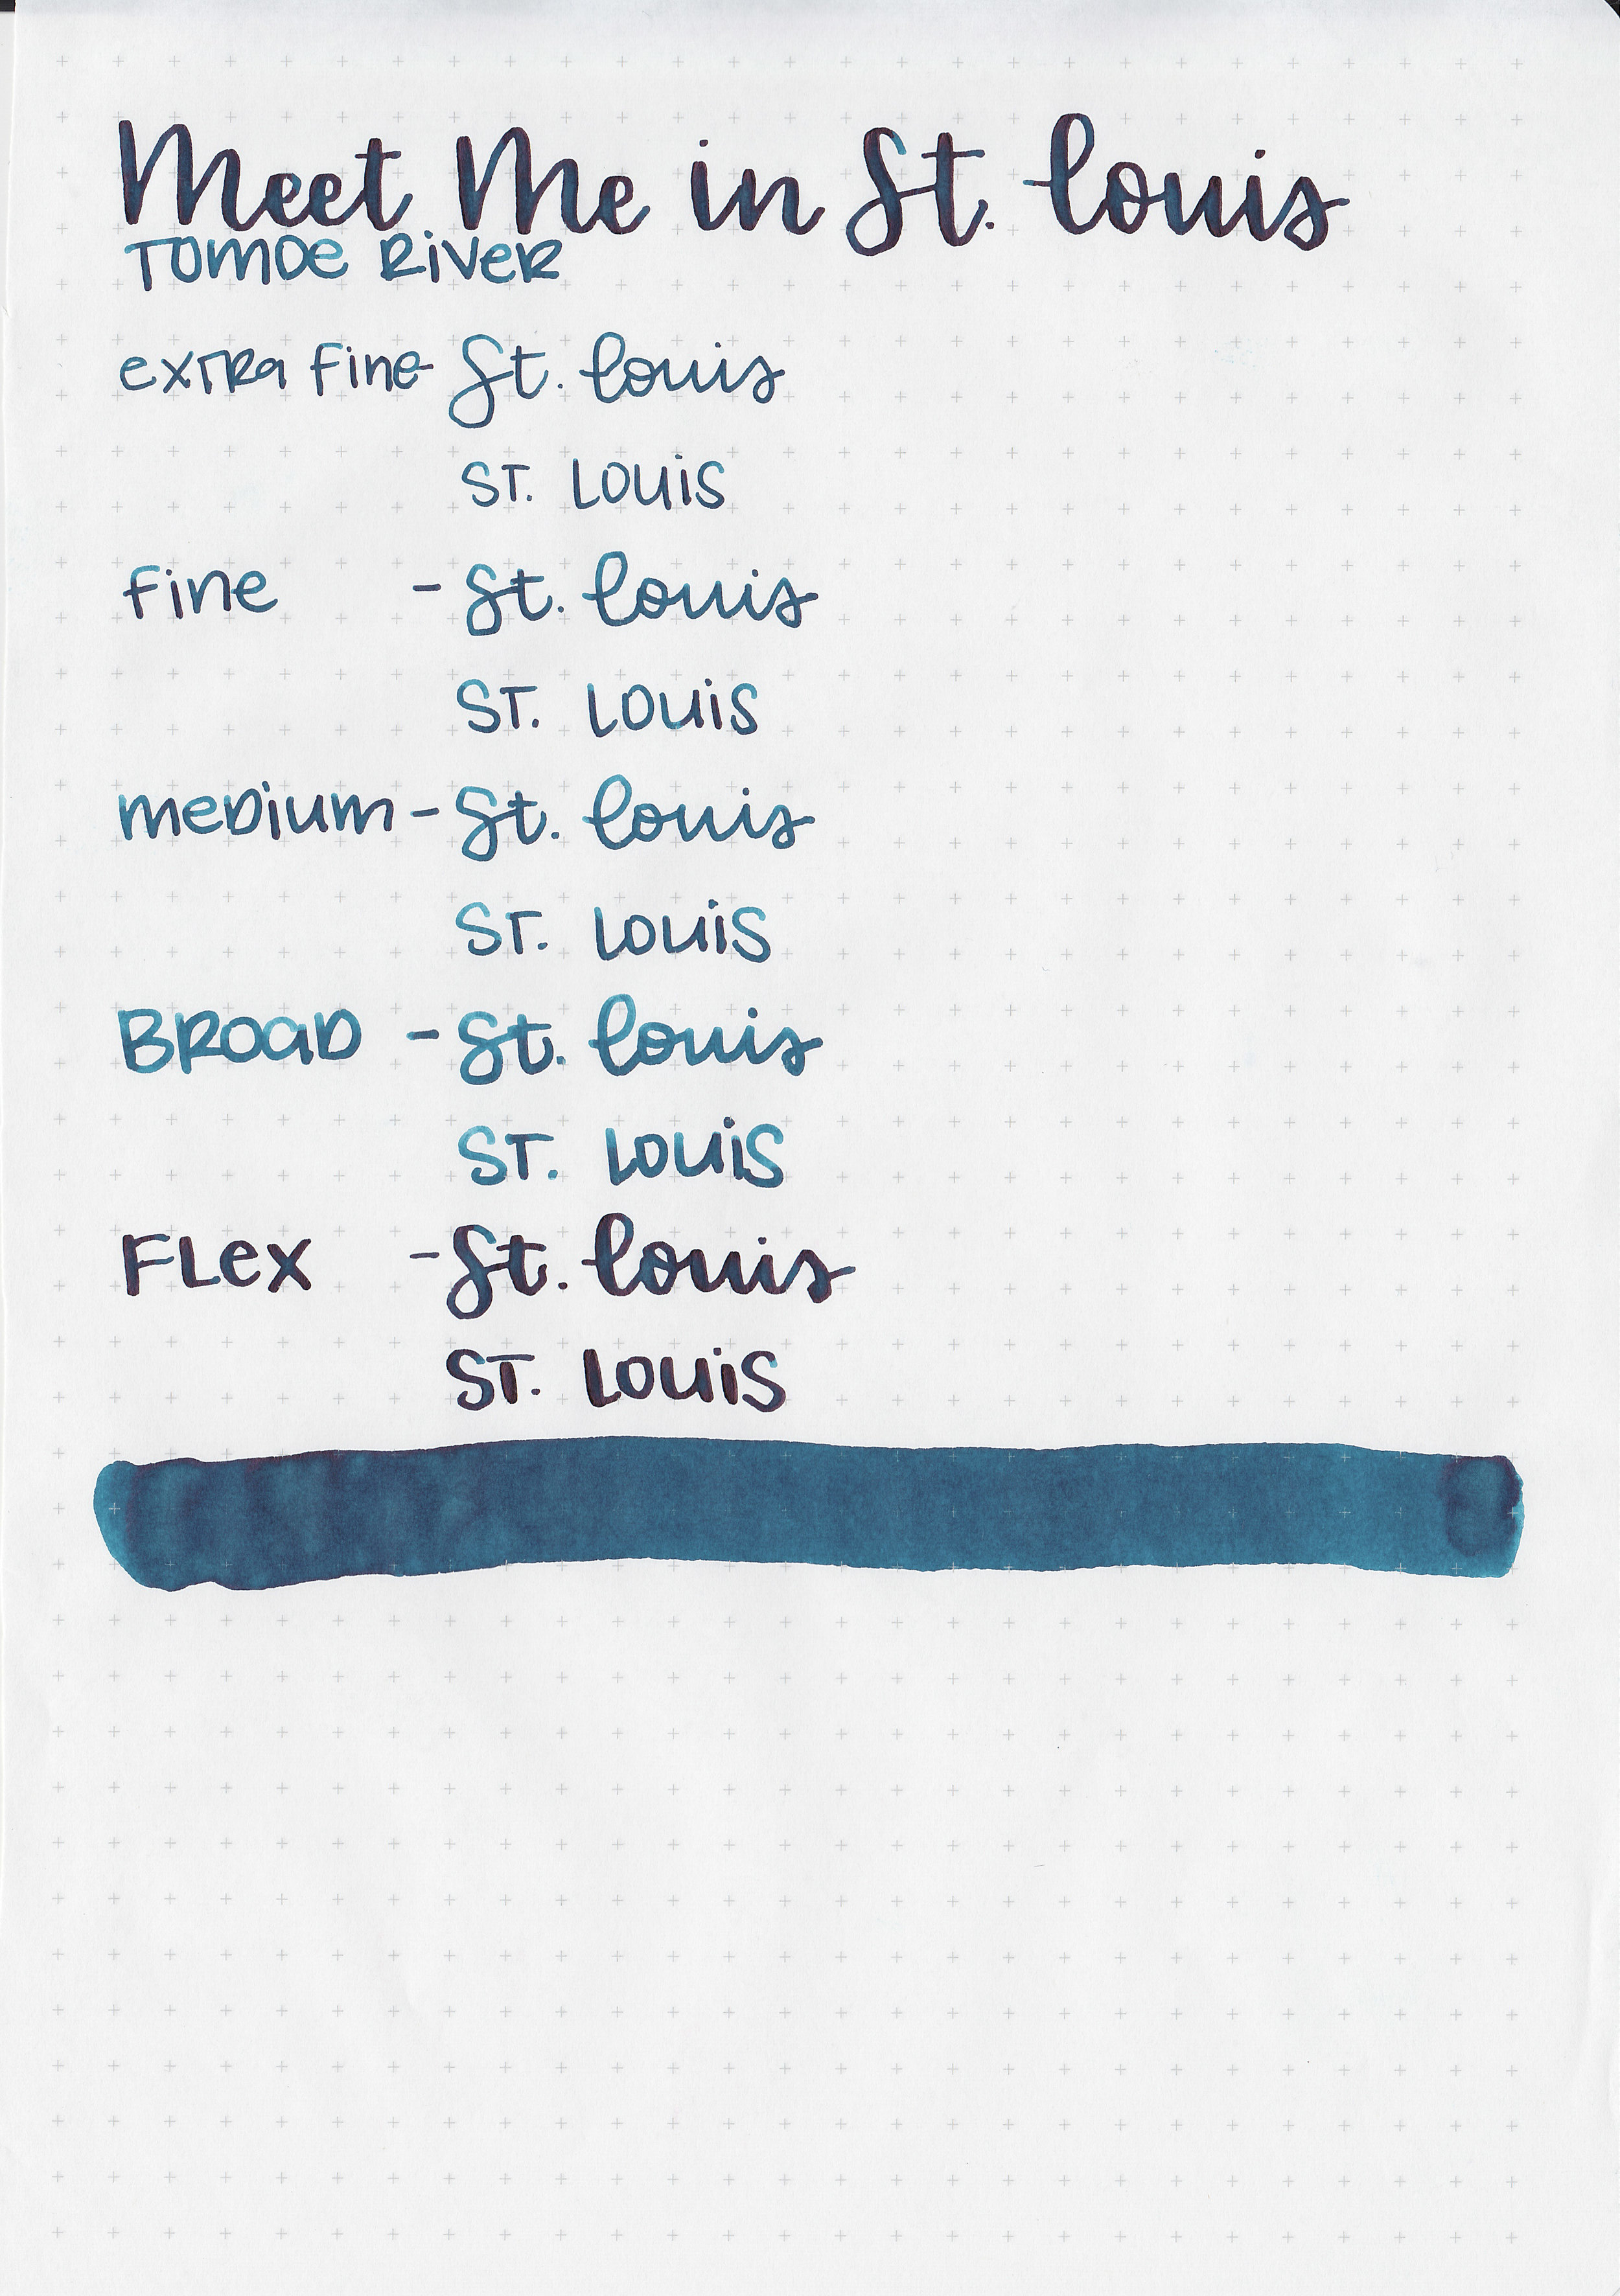 Meet Me in St. Louis
TOMOE RiVeR
exTRa Fine - St. Louis
ST. LOUiS
Fine - St. Louis
ST. LOUiS
meDium - St. Louis
ST. LOUiS
BROaD - St. Louis
ST. LOUiS
FLex - St. Louis
ST. LOUiS